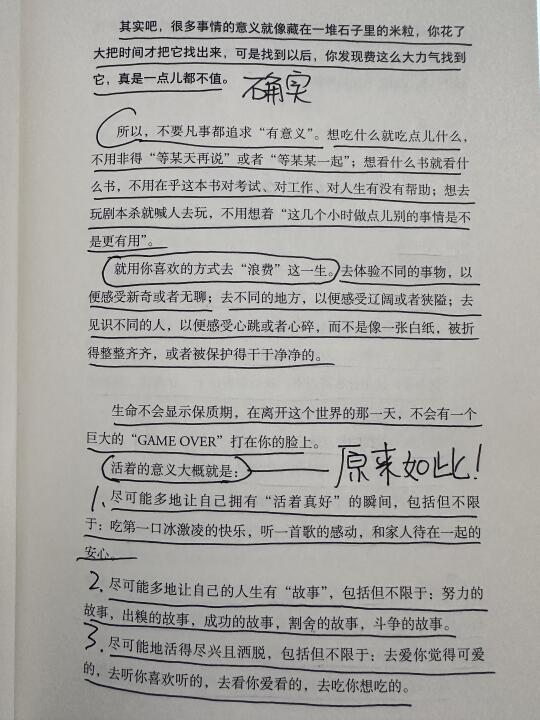 其实吧，很多事情的意义就像藏在一堆石子里的米粒，你花了
大把时间才把它找出来，可是找到以后，你发现费这么大力气找到
它，真是一点儿都不值。
确实
所以，不要凡事都追求“有意义”。想吃什么就吃点儿什么，
不用非得“等某天再说”或者“等某某一起”；想看什么书就看什
么书，不用在乎这本书对考试、对工作、对人生有没有帮助；想去
玩剧本杀就喊人去玩，不用想着“这几个小时做点儿别的事情是不
是更有用”。
就用你喜欢的方式去“浪费”这一生。去体验不同的事物，以
便感受新奇或者无聊；去不同的地方，以便感受辽阔或者狭隘；去
见识不同的人，以便感受心跳或者心碎，而不是像一张白纸，被折
得整整齐齐，或者被保护得干干净净的。
生命不会显示保质期，在离开这个世界的那一天，不会有一个
巨大的“GAME OVER”打在你的脸上。
活着的意义大概就是：
原来如此！
1.尽可能多地让自己拥有“活着真好”的瞬间，包括但不限
于：吃第一口冰激凌的快乐，听一首歌的感动，和家人待在一起的
安心。
2.尽可能多地让自己的人生有“故事”，包括但不限于：努力的
故事，出糗的故事，成功的故事，割舍的故事，斗争的故事。
3.尽可能地活得尽兴且洒脱，包括但不限于：去爱你觉得可爱
的，去听你喜欢听的，去看你爱看的，去吃你想吃的。